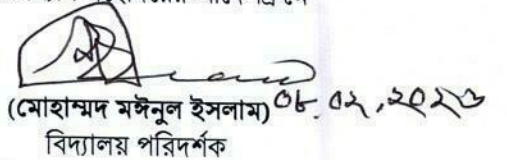 (মোহাম্মদ মঈনুল ইসলাম) ০৮.০২.২০২৩
বিদ্যালয় পরিদর্শক